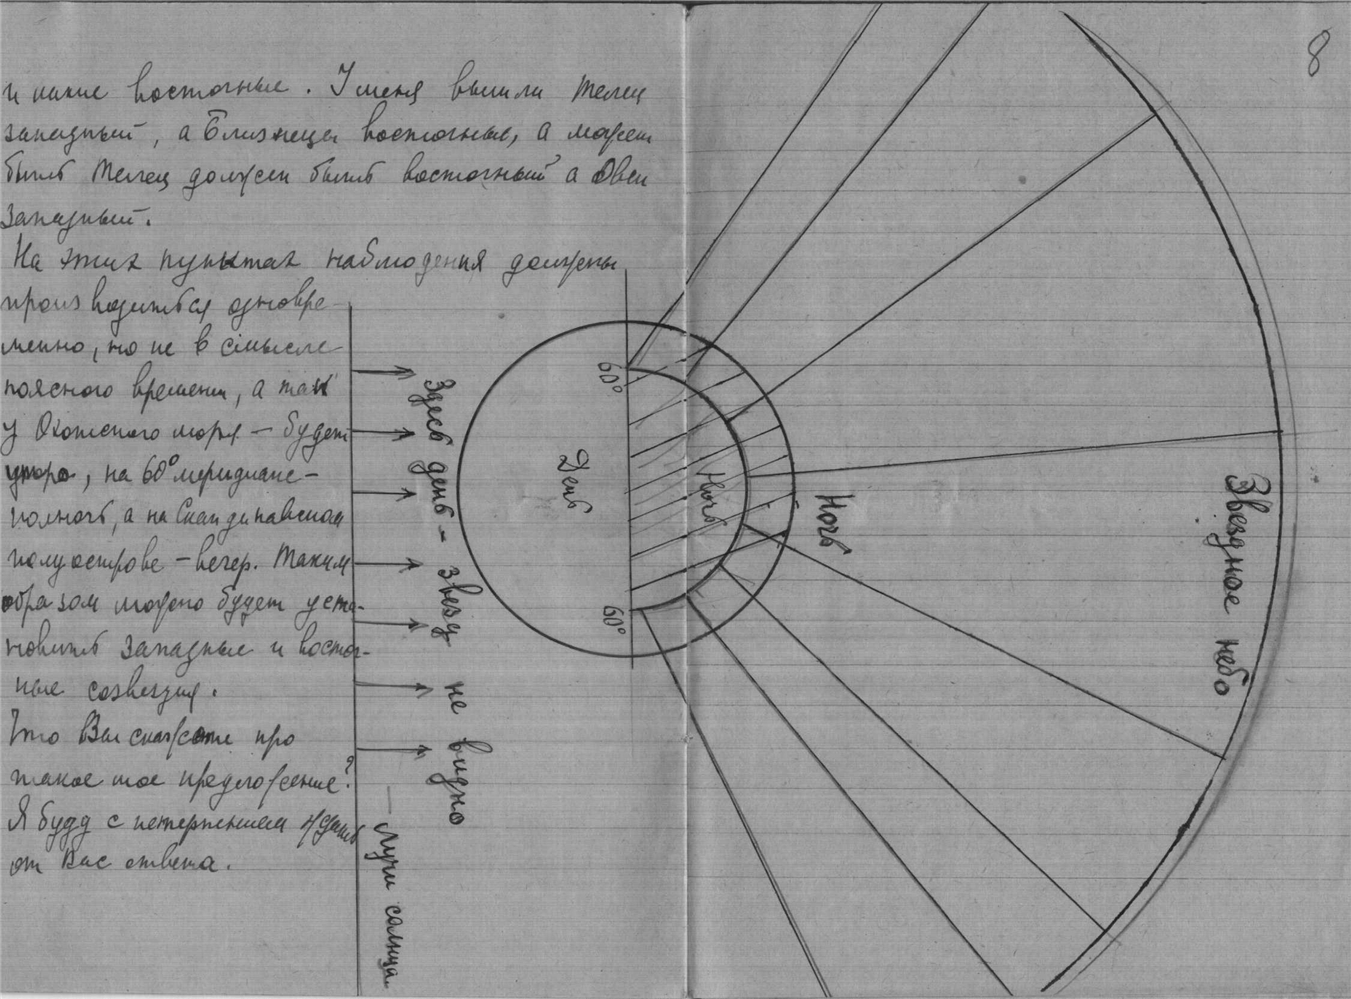 8
и какие восточные. У меня вышли Телец
западный, а Близнецы восточные, а может
быть Телец должен быть восточный а Овен
западный.
На этих пунктах наблюдения должны
производиться одновре-
менно, но не в смысле
поясного времени, а так
у Охотского моря – будет
утро, на 60° меридиане –
полночь, а на Скандинавском
полуострове – вечер. Таким
образом можно будет уста-
новить западные и восточ-
ные созвездия.
Что Вы скажете про
такое мое предложение?
Я буду с нетерпением ждать
от Вас ответа.
Здесь день – звезд не видно
– Лучи солнца
60°
День
Ночь
60°
Ночь
Звездное небо